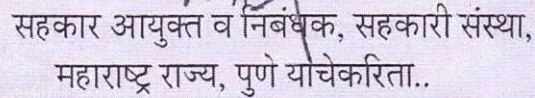 सहकार आयुक्त व निबंधक, सहकारी संस्था,
महाराष्ट्र राज्य, पुणे यांचेकरिता..